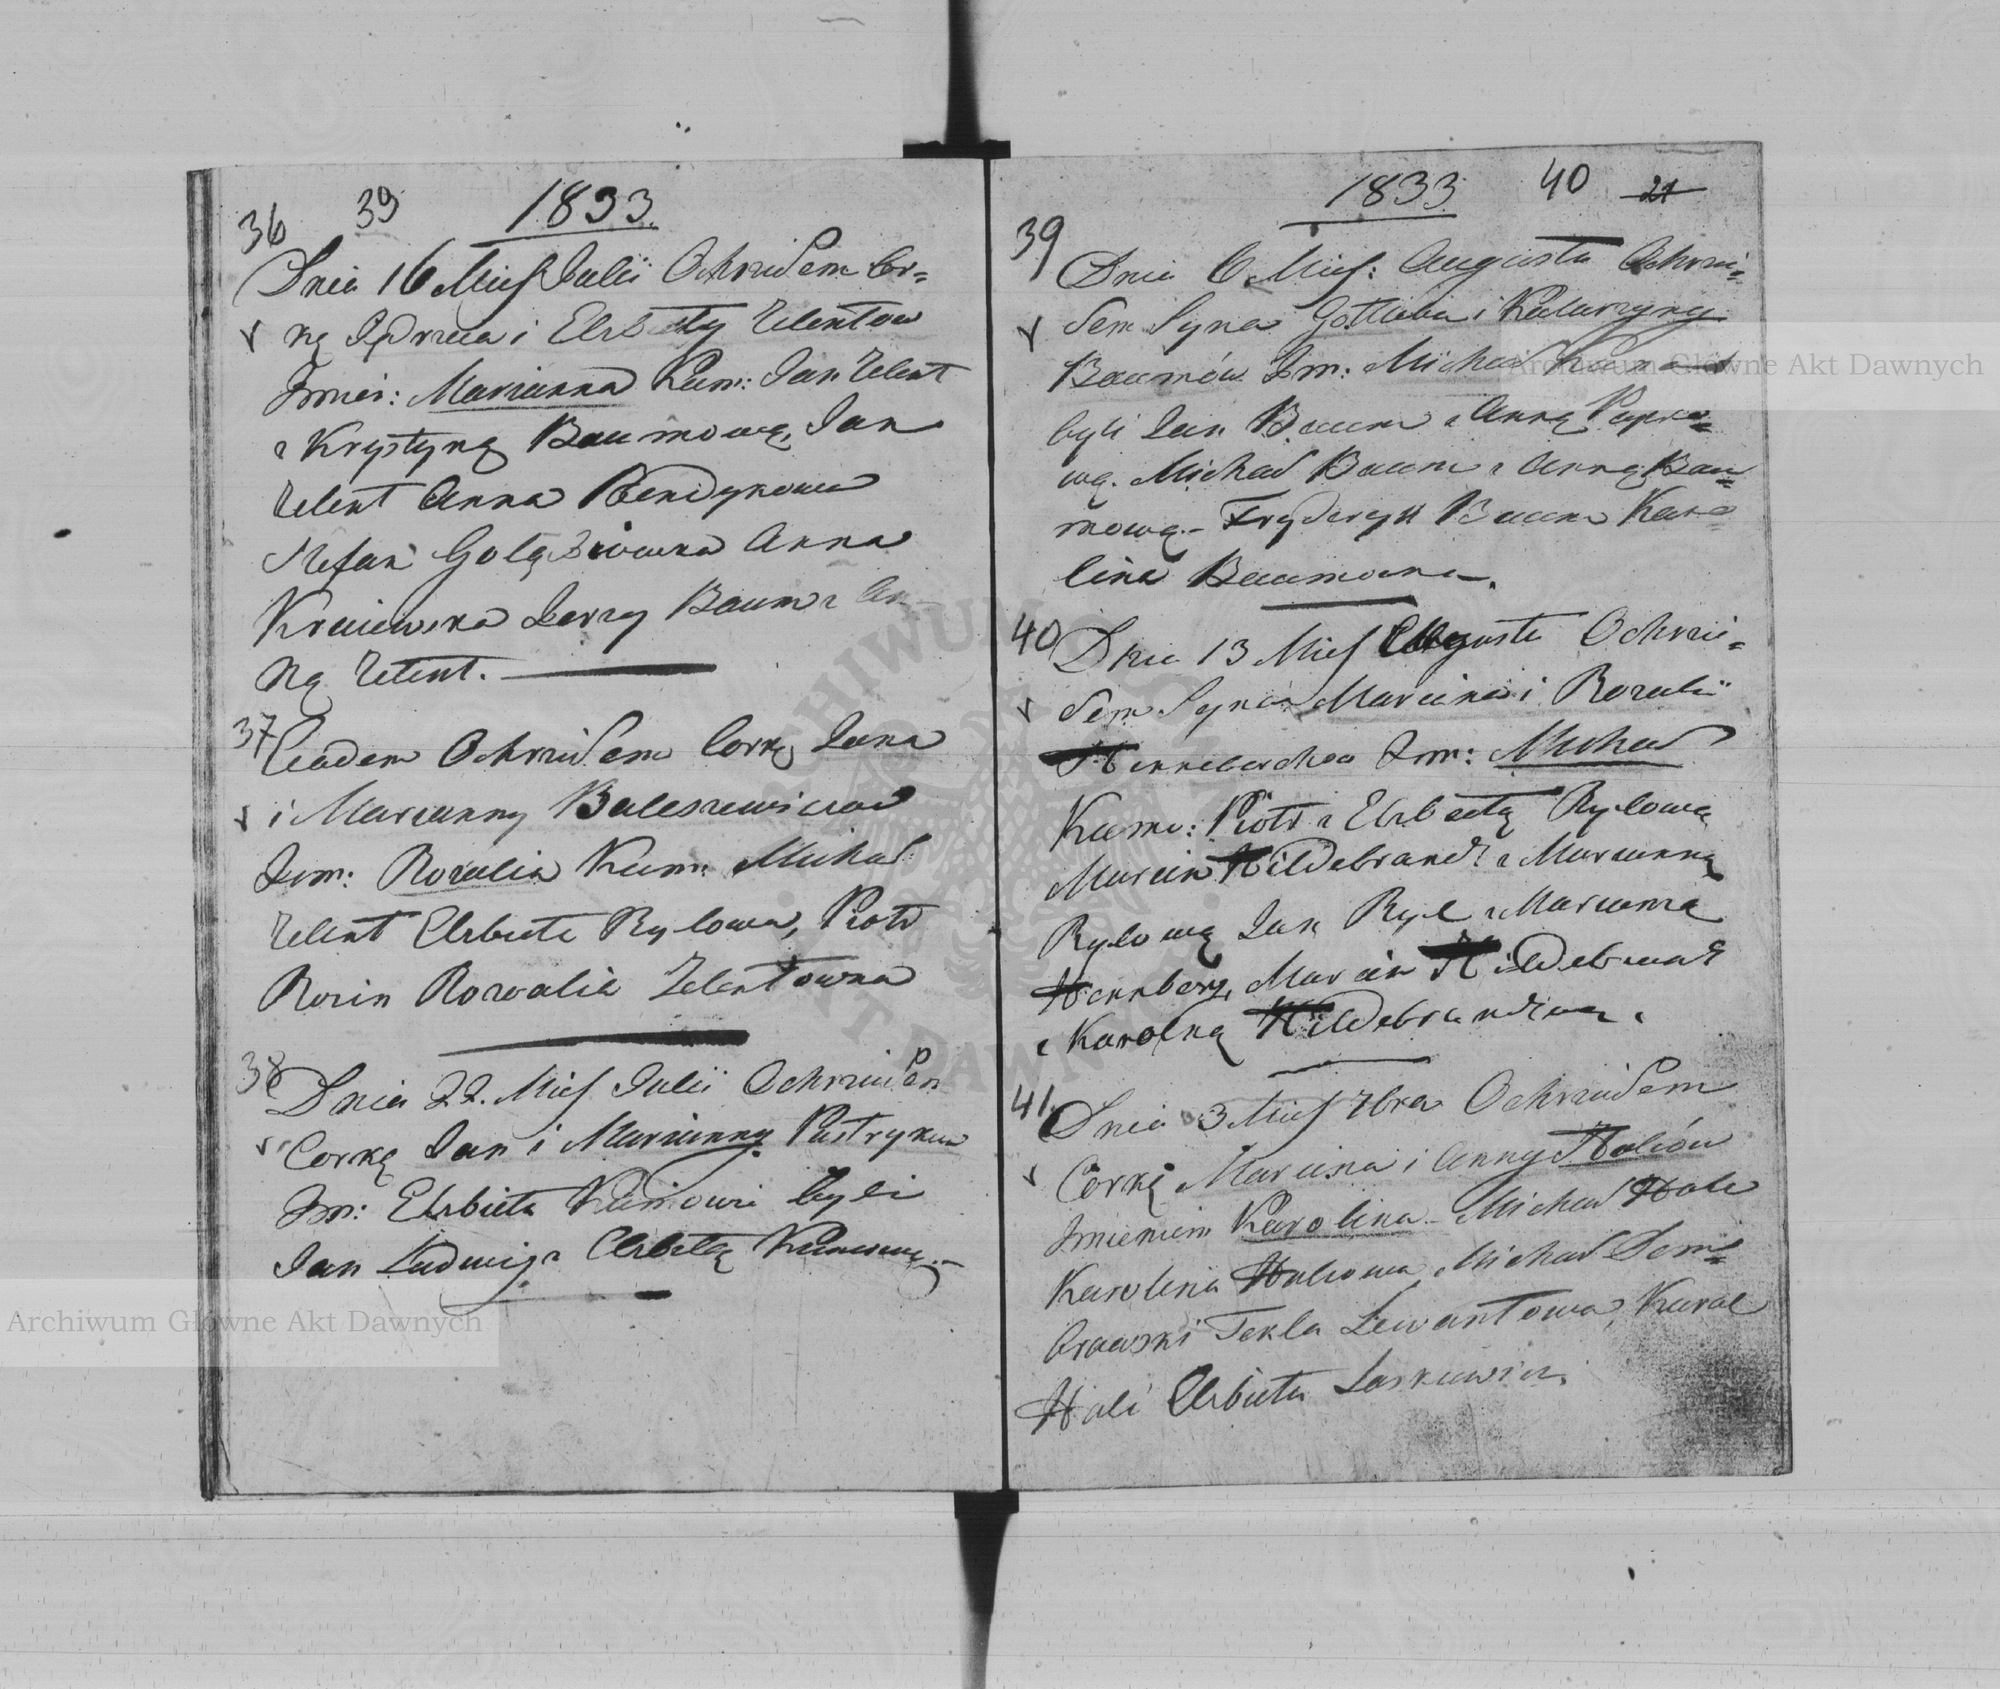 36 39 1833.
Dnia 16 Mies Julii Ochrzciłem Cór=
kę Jędrzeia i Elżbiety Zelentow
Imiei: Marianna Kum: Jan Zelent
z Krystyną Baumową, Jan
Zelent Anna Bendykowa
Stefan Anna
Jerzy Baum z An
ną Zelent.
37
Eadem Ochrzciłem Corkę Jana
i Marianny Baleszewiczow
Im: Rozalia Kum: Michał
Zelent Elzbieta Rylowa, Piotr
Rozin Rozalia Zelentowna
38
Dnia 22. Mies Julii Ochrzciłem
Corkę Jan i Marianny
Im: Elzbieta Kumowi byli
Jan Ludwig z Elzbietą
1833 40 21
39
Dnia 6 Mies: Augusta Ochrzci=
łem Syna Gottlieba i Katarzyny
Baumów Im: Michał
byli Jan Baum z Anną
wą. Michał Baum z Anną Bau=
mową - Fryderyk Baum Karo
lina Baumowna.
40
Dnia 13 Mies Augusta Ochrzci=
łem Syna Marcina i Rozalii
Im: Michał
Kum: Piotr z Elzbietą Rylową
Marcin Hildebrandt z Marianną
Rylową Jan Ryl z Marianną
Hennberg, Marcin Hildebrandt
z Karolną
41.
Dnia 3 Mies 7bra Ochrzciłem
Corkę Marcina i Anny Halów
Imieniem Karolina - Michał Hali
Karolina Halowa, Michał Dem=
browski Tekla Lewantowa, Karol
Hali Elzbieta Laskiewicz.
Archiwum Główne Akt Dawnych
Archiwum Główne Akt Dawnych